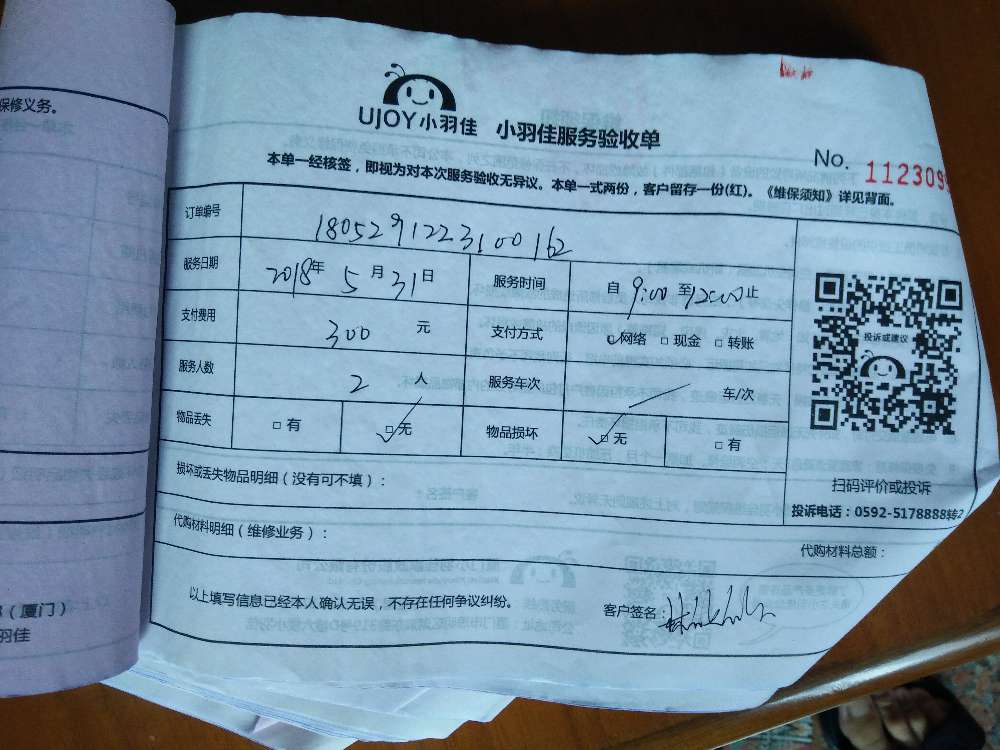 保修义务。
UJOY小羽佳 小羽佳服务验收单
No. 1123095
本单一经核签，即视为对本次服务验收无异议。本单一式两份，客户留存一份(红)。《维保须知》详见背面。
订单编号 1805291223100162
服务日期 2018年 5 月 31 日 服务时间 自 9:00 至 12:00 止
支付费用 300 元 支付方式 □网络 □现金 □转账
投诉或建议
服务人数 2 人 服务车次 车/次
物品丢失 □有 □无 物品损坏 □无 □有
损坏或丢失物品明细（没有可不填）：
扫码评价或投诉
投诉电话：0592-5178888转2
代购材料明细（维修业务）：
代购材料总额：
以上填写信息已经本人确认无误，不存在任何争议纠纷。
客户签名：
（厦门）
羽佳